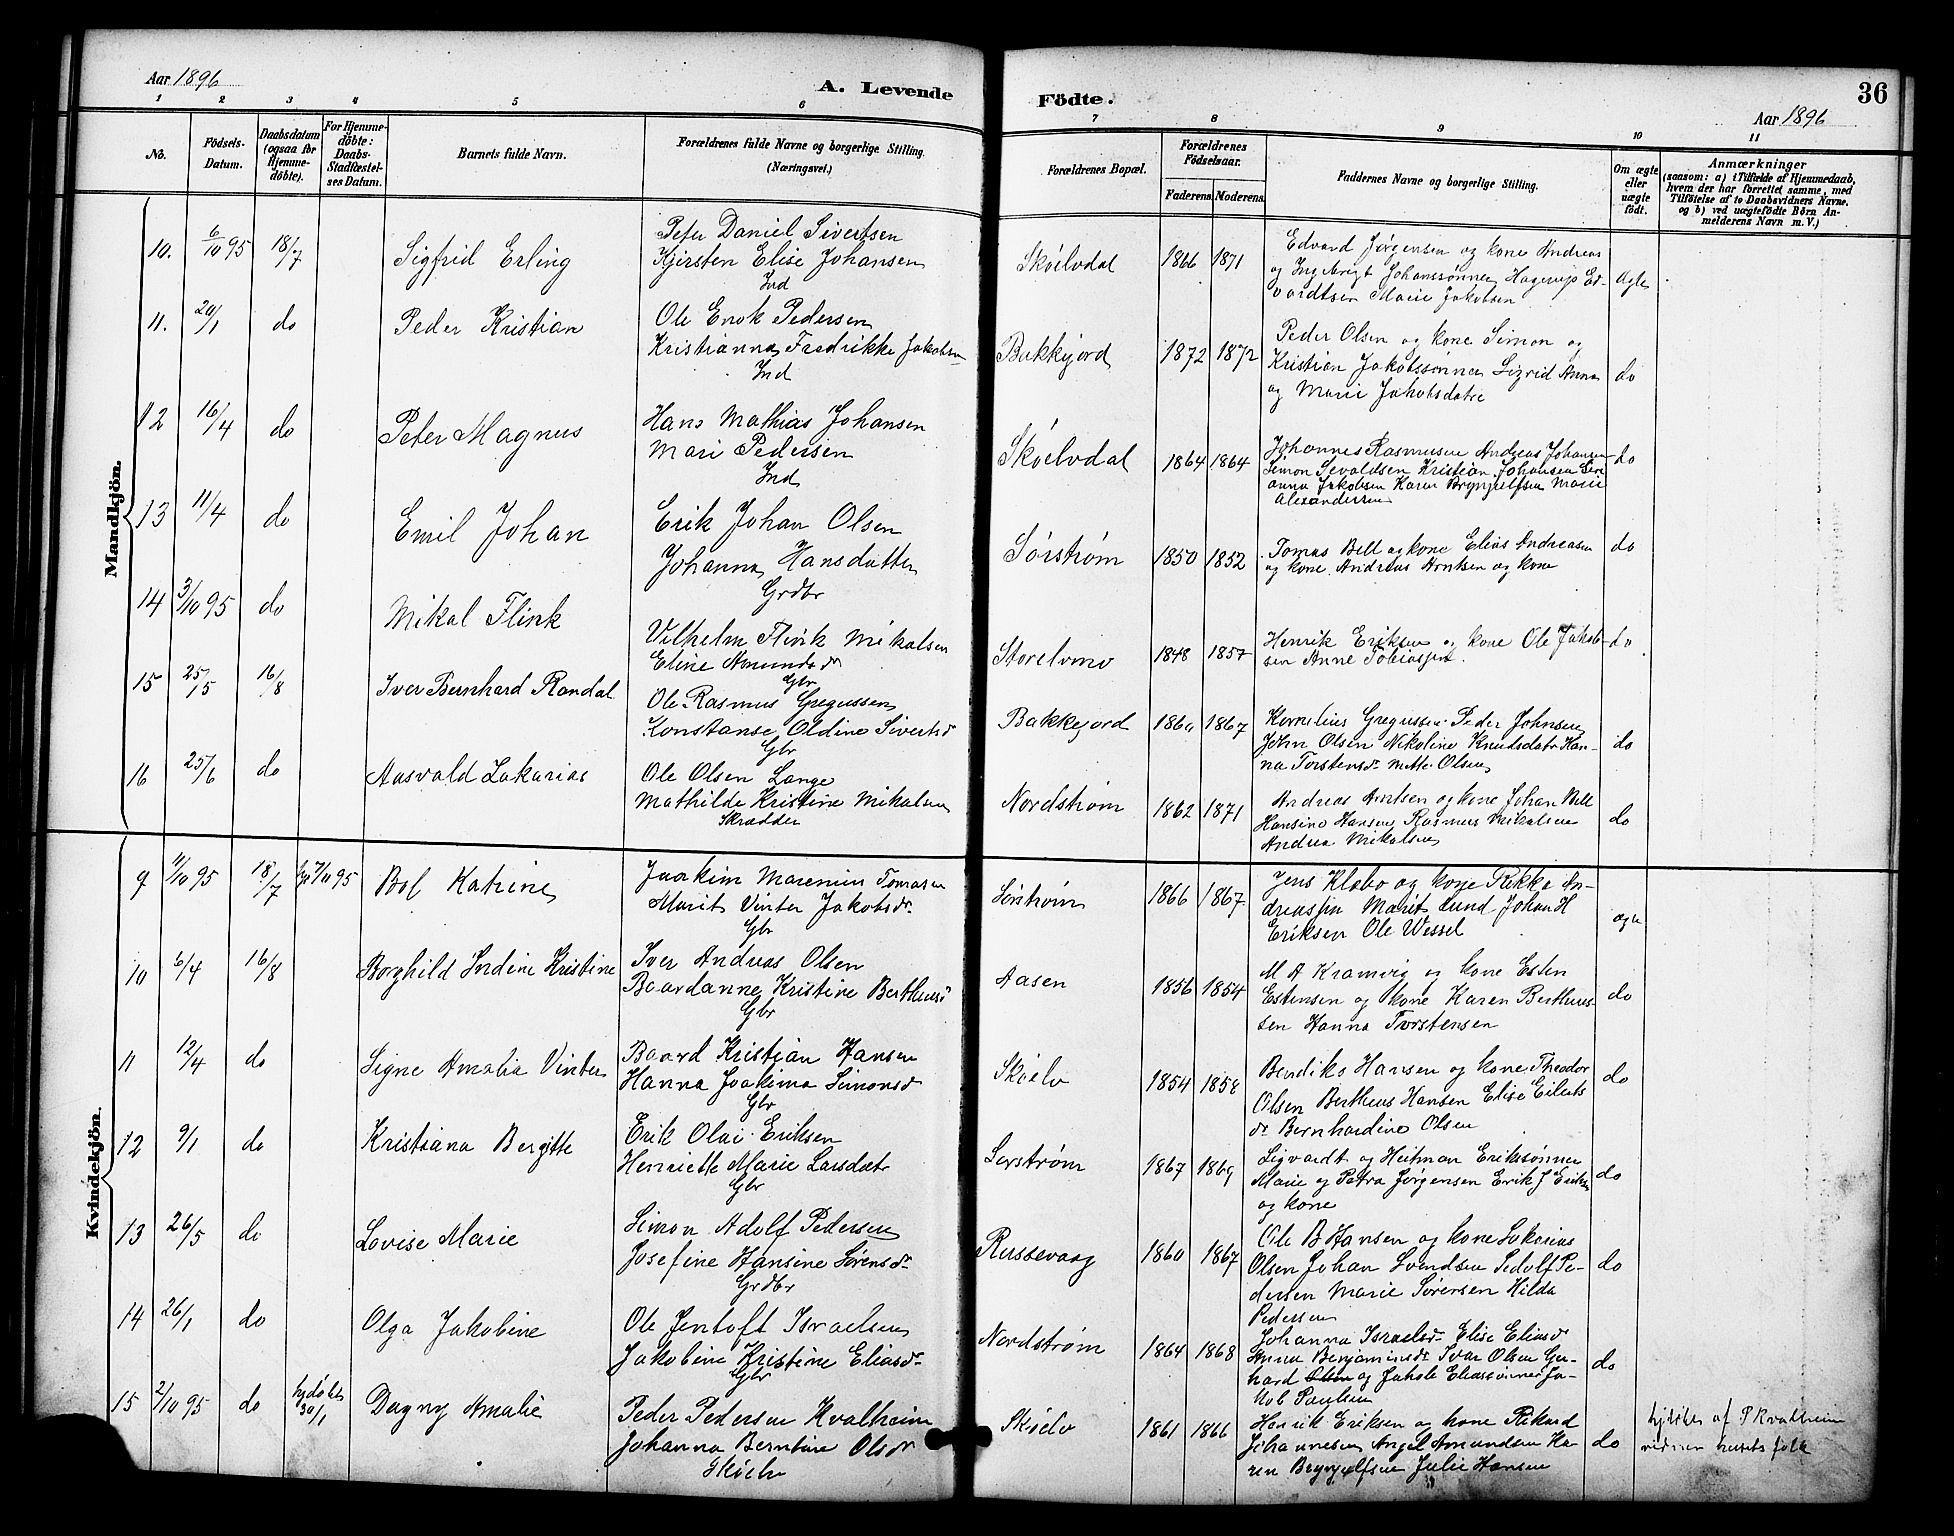 Aar 1896
A. Levende
1 2 3 4 5 6
No.
Födsels-
Datum.
Daabsdatum
(ogsaa for
Hjemme-
döbte).
For Hjemme-
döbte:
Daabs-
Stadfæstel-
ses Datum.
Barnets fulde Navn.
Forældrenes fulde Navne og borgerlige Stilling.
(Næringsvei.)
Mandkjön.
10. 6/10 95 18/7 Sigfrid Erling
Peter Daniel Sivertsen
Kjersten Elise Johansen
Ind
11. 20/1 do Peder Kristian
Ole Enok Pedersen
Kristianna Fredrikke Jakobsen
Ind
12 16/4 do Peter Magnus
Hans Mathias Johansen
Mari Pedersen
Ind
13 11/4 do Emil Johan
Erik Johan Olsen
Johanna Hansdatter
Grdbr
14 3/10 95 do Mikal Flink
Vilhelm Flink Mikalsen
Eline Amundsdr
Gbr
15 25/5 16/8 Iver Bernhard Randal
Ole Rasmus Gregussen
Konstanse Oldine Sivertsd
Gbr
16 25/6 do Aasvald Zakarias
Ole Olsen Lange
Mathilde Kristine Mikalsen
Skrædder
Kvindekjön.
9 11/10 95 18/7 95 Bol Katrine
Joakim Marenius Tomasen
Marit Vinter Jakobsdr
Gbr
10 6/4 16/8 Borghild Indine Kristine
Iver Andreas Olsen
Baardanne Kristine Bertheus
Gbr
11 12/4 do Signe Amalia Vinter
Baard Kristian Hansen
Hanna Joakima Simonsd
Gbr
12 9/1 do Kristiana Bergitte
Erik Olai Eriksen
Henriette Marie Larsdat
Gbr
13 26/5 do Lovise Marie
Simon Adolf Pedersen
Josefine Hansine Sörensdr
Grdbr
14 26/1 do Olga Jakobine
Ole Jentoft Israelsen
Jakobine Kristine Eliasdr
Gbr
15 2/10 95 do hjdöbt 30/1 Dagny Amalie
Peder Pedersen Kvalheim
Johanna Berntine Olsdr
Sköelv
Födte.
36
Aar 1896
7 8 9 10 11
Forældrenes Bopæl.
Forældrenes
Födselsaar.
Faderens. Moderens.
Faddernes Navne og borgerlige Stilling.
Om ægte
eller
uægte
födt.
Anmærkninger
(saasom: a) i Tilfælde af Hjemmedaab,
hvem der har forrettet samme, med
Tilföielse af to Daabsvidners Navne.
og b) ved uægtefödte Börn An-
melderens Navn m. V.)
Sköelvdal 1866 1871
Edvard Jørgensen og kone Andreas
og Ingebrigt Johanssønner Hagerup Ed-
vardtsen Marie Jakobsen
ægte
Bakkejord 1872 1872
Peder Olsen og kone Simon og
Kristian Jakobssønner Sigrid Anna
og Marie Jakobsdatre
do
Sköelvdal 1864 1864
Johannes Rasmusen Andreas Johansen
Simon Sivaldsen Kristian Johansen
anna Jakobsen Karen Brynjelfsen Marie
Alexandersen
do
Sörstrøm 1850 1852
Tomas Bell og kone Elias Andreasen
og kone Andreas Arntsen og kone
do
Storelvmo 1848 1857
Henrik Eriksen og kone Ole Jakob-
sen Anne Tobiassen
do
Bakkejord 1860 1867
Kornelius Gregussen Peder Johnsen
John Olsen Nikoline Knudsdatr Han-
na Torstensdr Mette Olsen
do
Nordstrøm 1862 1871
Andreas Arntsen og kone Johan Bell
Hansine Hansen Rasmus Mikalsen
Andrea Mikalsen
do
Sörstrøm 1866 1867
Jens Klæbo og kone Rikka An-
dreassen Marit Lund Johan H
Eriksen Ole Wessel
ægte
Aasen 1856 1854
M A Kramvig og kone Esten
Estensen og kone Karen Bertheus
sen Hanna Torstensen
do
Sköelv 1854 1858
Bendiks Hansen og kone Theodor
Olsen Bertheus Hansen Elise Eilerts
dr Bernhardine Olsen
do
Serstrøm 1867 1869
Sigvardt og Heitman Erikssønner
Marie og Petra Jørgensen Erik J Eriksen
og kone
do
Russevaag 1860 1867
Ole B Hansen og kone Sakarias
Olsen Johan Svendsen Pedolf Pe-
dersen Marie Sørensen Hilda
Pedersen
do
Nordstrøm 1864 1868
Johanna Israelsdr Elise Eliasdr
Anna Benjaminsdr Ivar Olsen Ger-
hard og Jakob Eliassønner Ja-
kob Paulsen
do
Skøelv 1861 1866
Henrik Eriksen og kone Rikard
Johannesen Angel Amundsen Ka-
ren Brynjelfsen Julie Hansen
do
hjdöbt af P Kvalheim
vidner husets folk